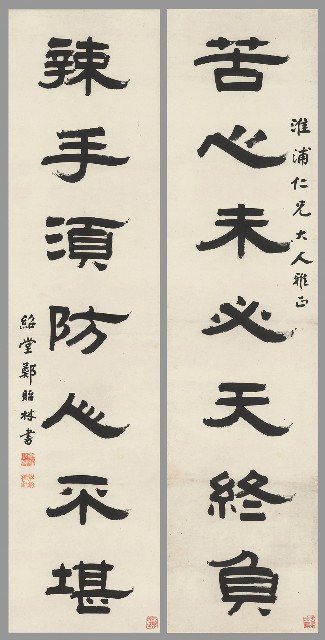 淮浦仁兄大人雅正
苦心未必天終負
辣手須防人不堪
紹堂鄭貽林書